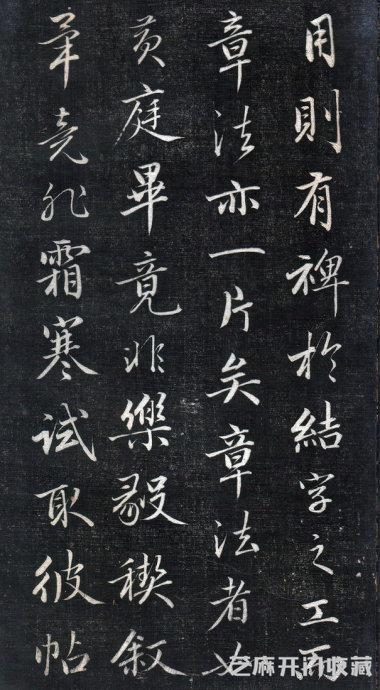 用則有裨於結字之工而
章法亦一片矣章法者如
黄庭畢竟非樂毅禊叙
畢竟非霜寒試取彼帖
芝麻开门收藏